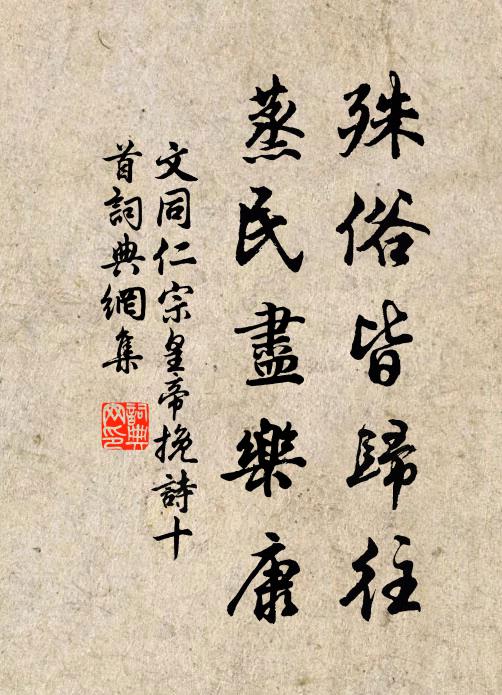 殊俗皆歸往
蒸民盡樂康
文同仁宗皇帝挽詩十
首詞典網集
詞典
网印